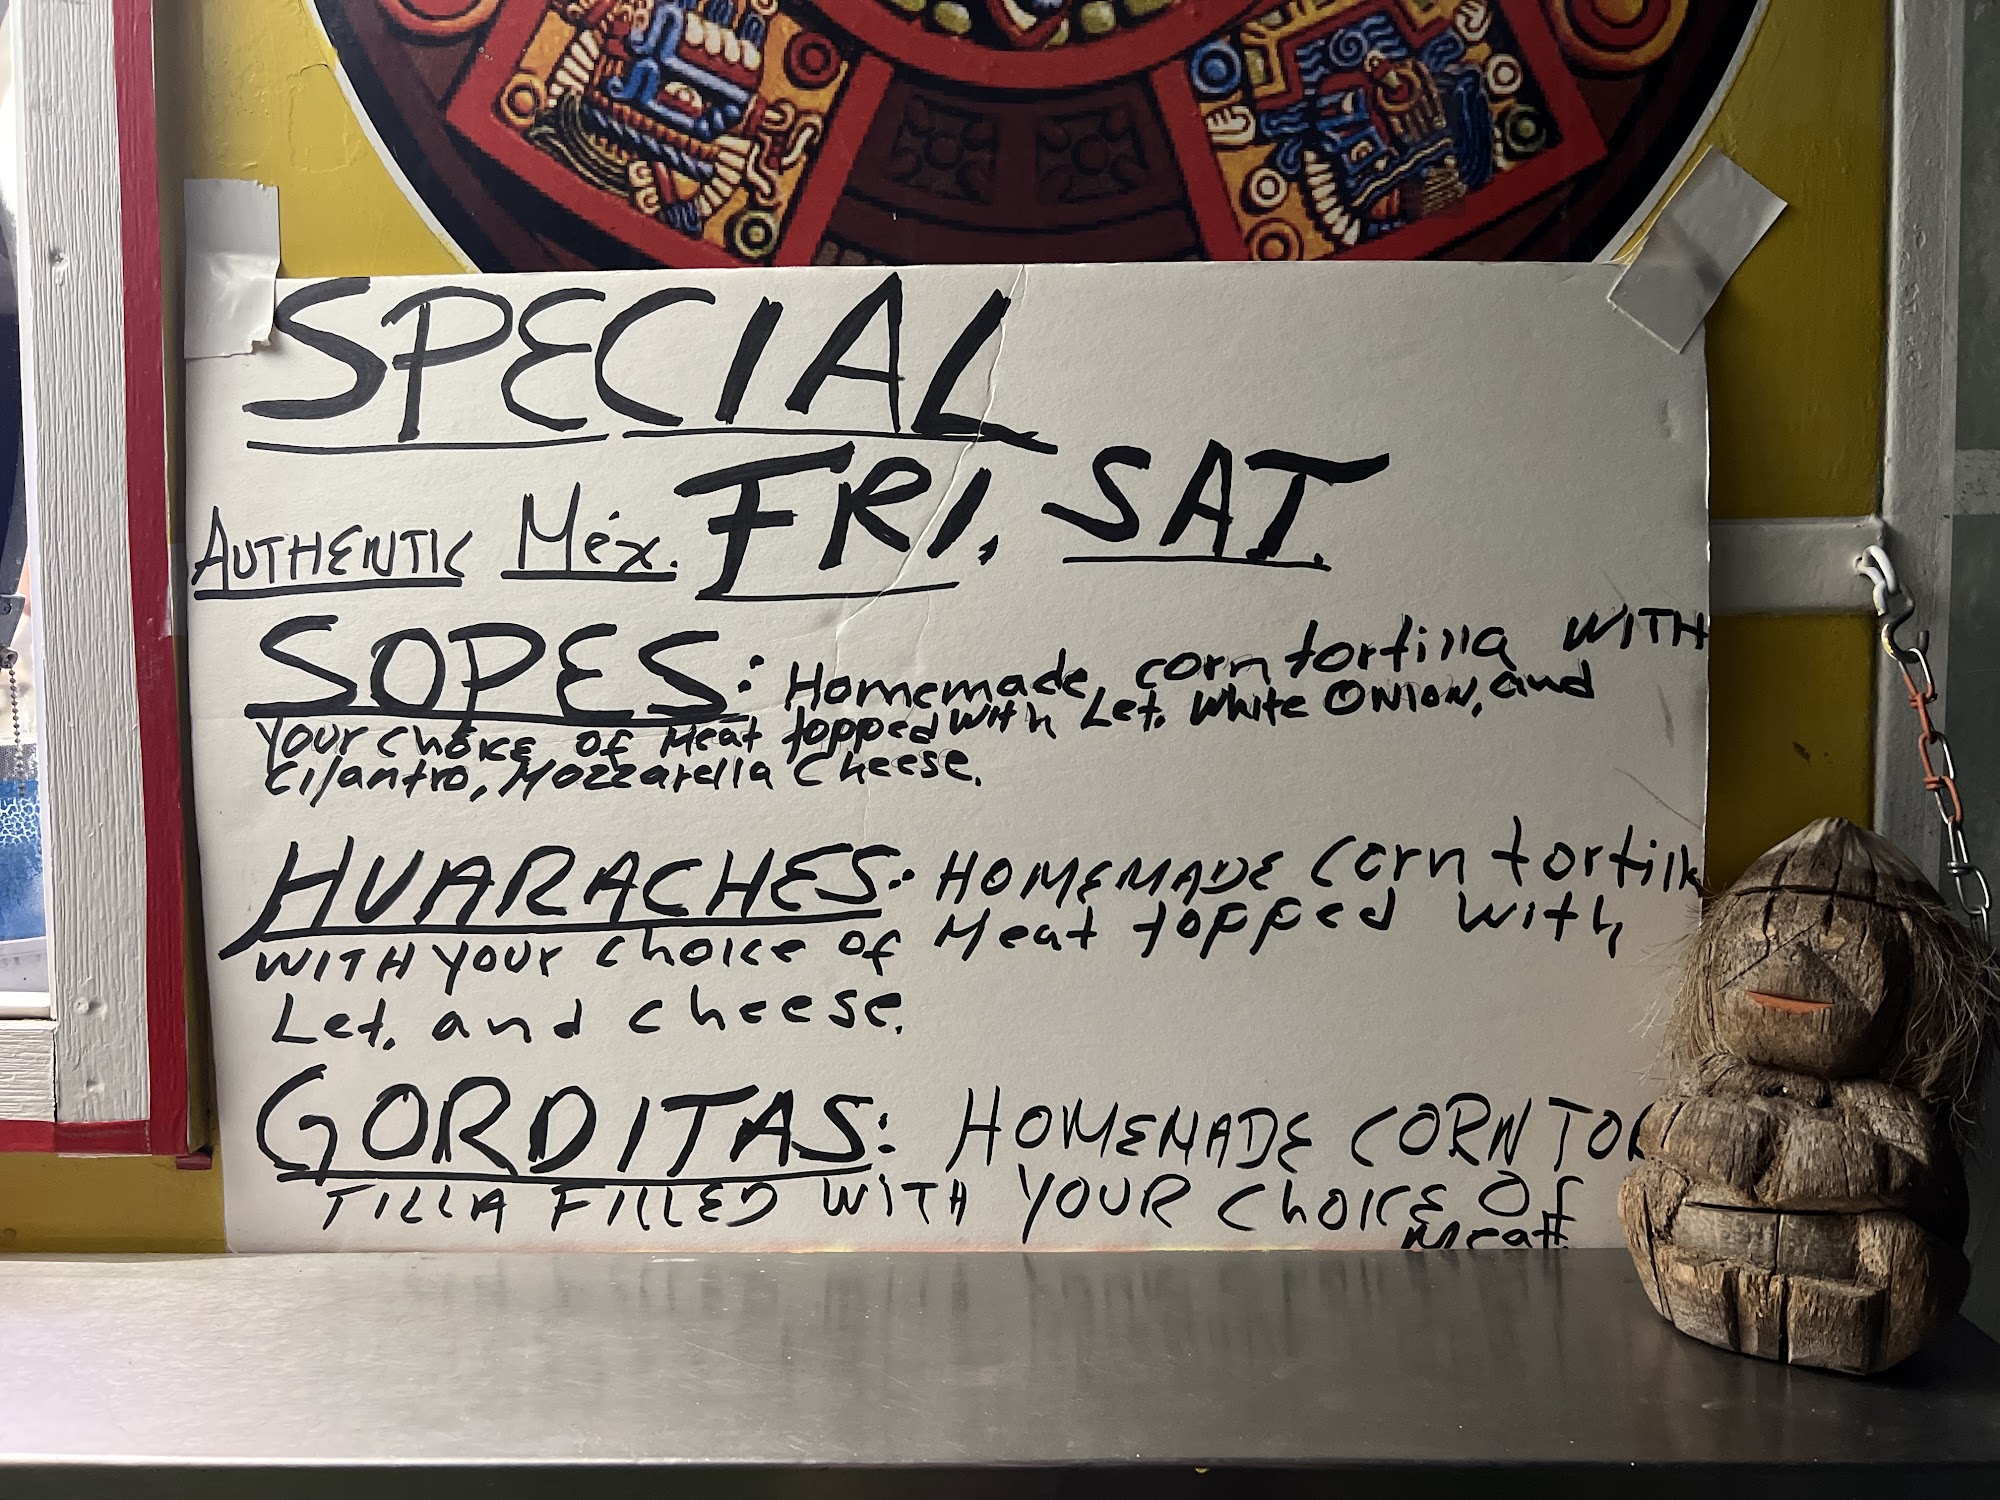 SPECIAL
AUTHENTIC Méx. FRI, SAT.
SOPES: Homemade corn tortilla WITH
Your choice of Meat topped with Let. White ONION, and
Cilantro, Mozzarella cheese.
HUARACHES: HOMEMADE corn tortilla
WITH YOUr choice of Meat topped with
Let. and cheese.
GORDITAS: HOMEMADE CORN TOR
TILLA FILLED WITH YOUR CHOICE OF
Meat.